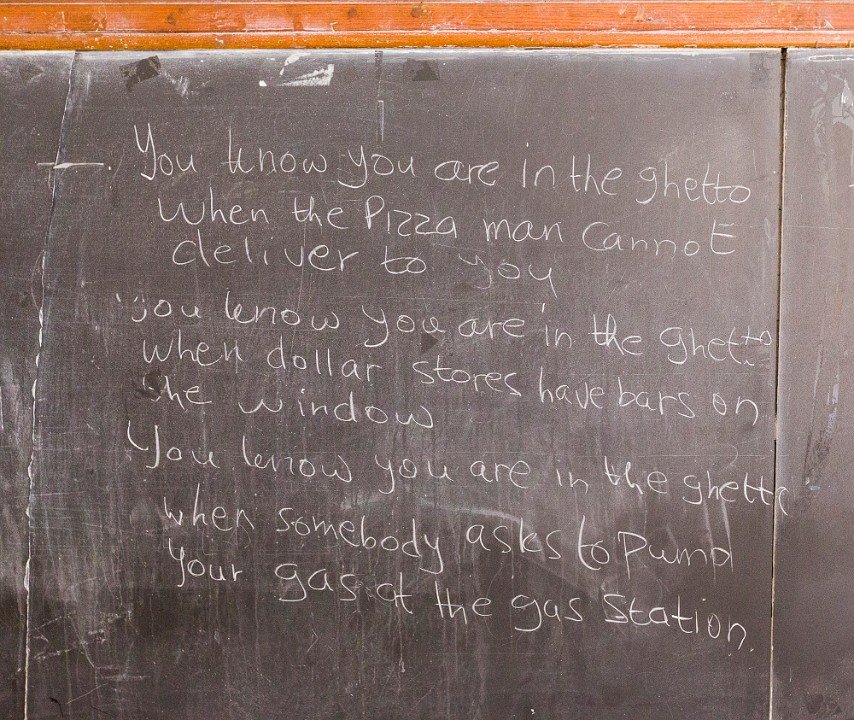 You know you are in the ghetto
when the Pizza man cannot
deliver to you
you know you are in the ghetto
when dollar stores have bars on
the window
You know you are in the ghetto
when somebody asks to Pump
your gas at the gas Station.